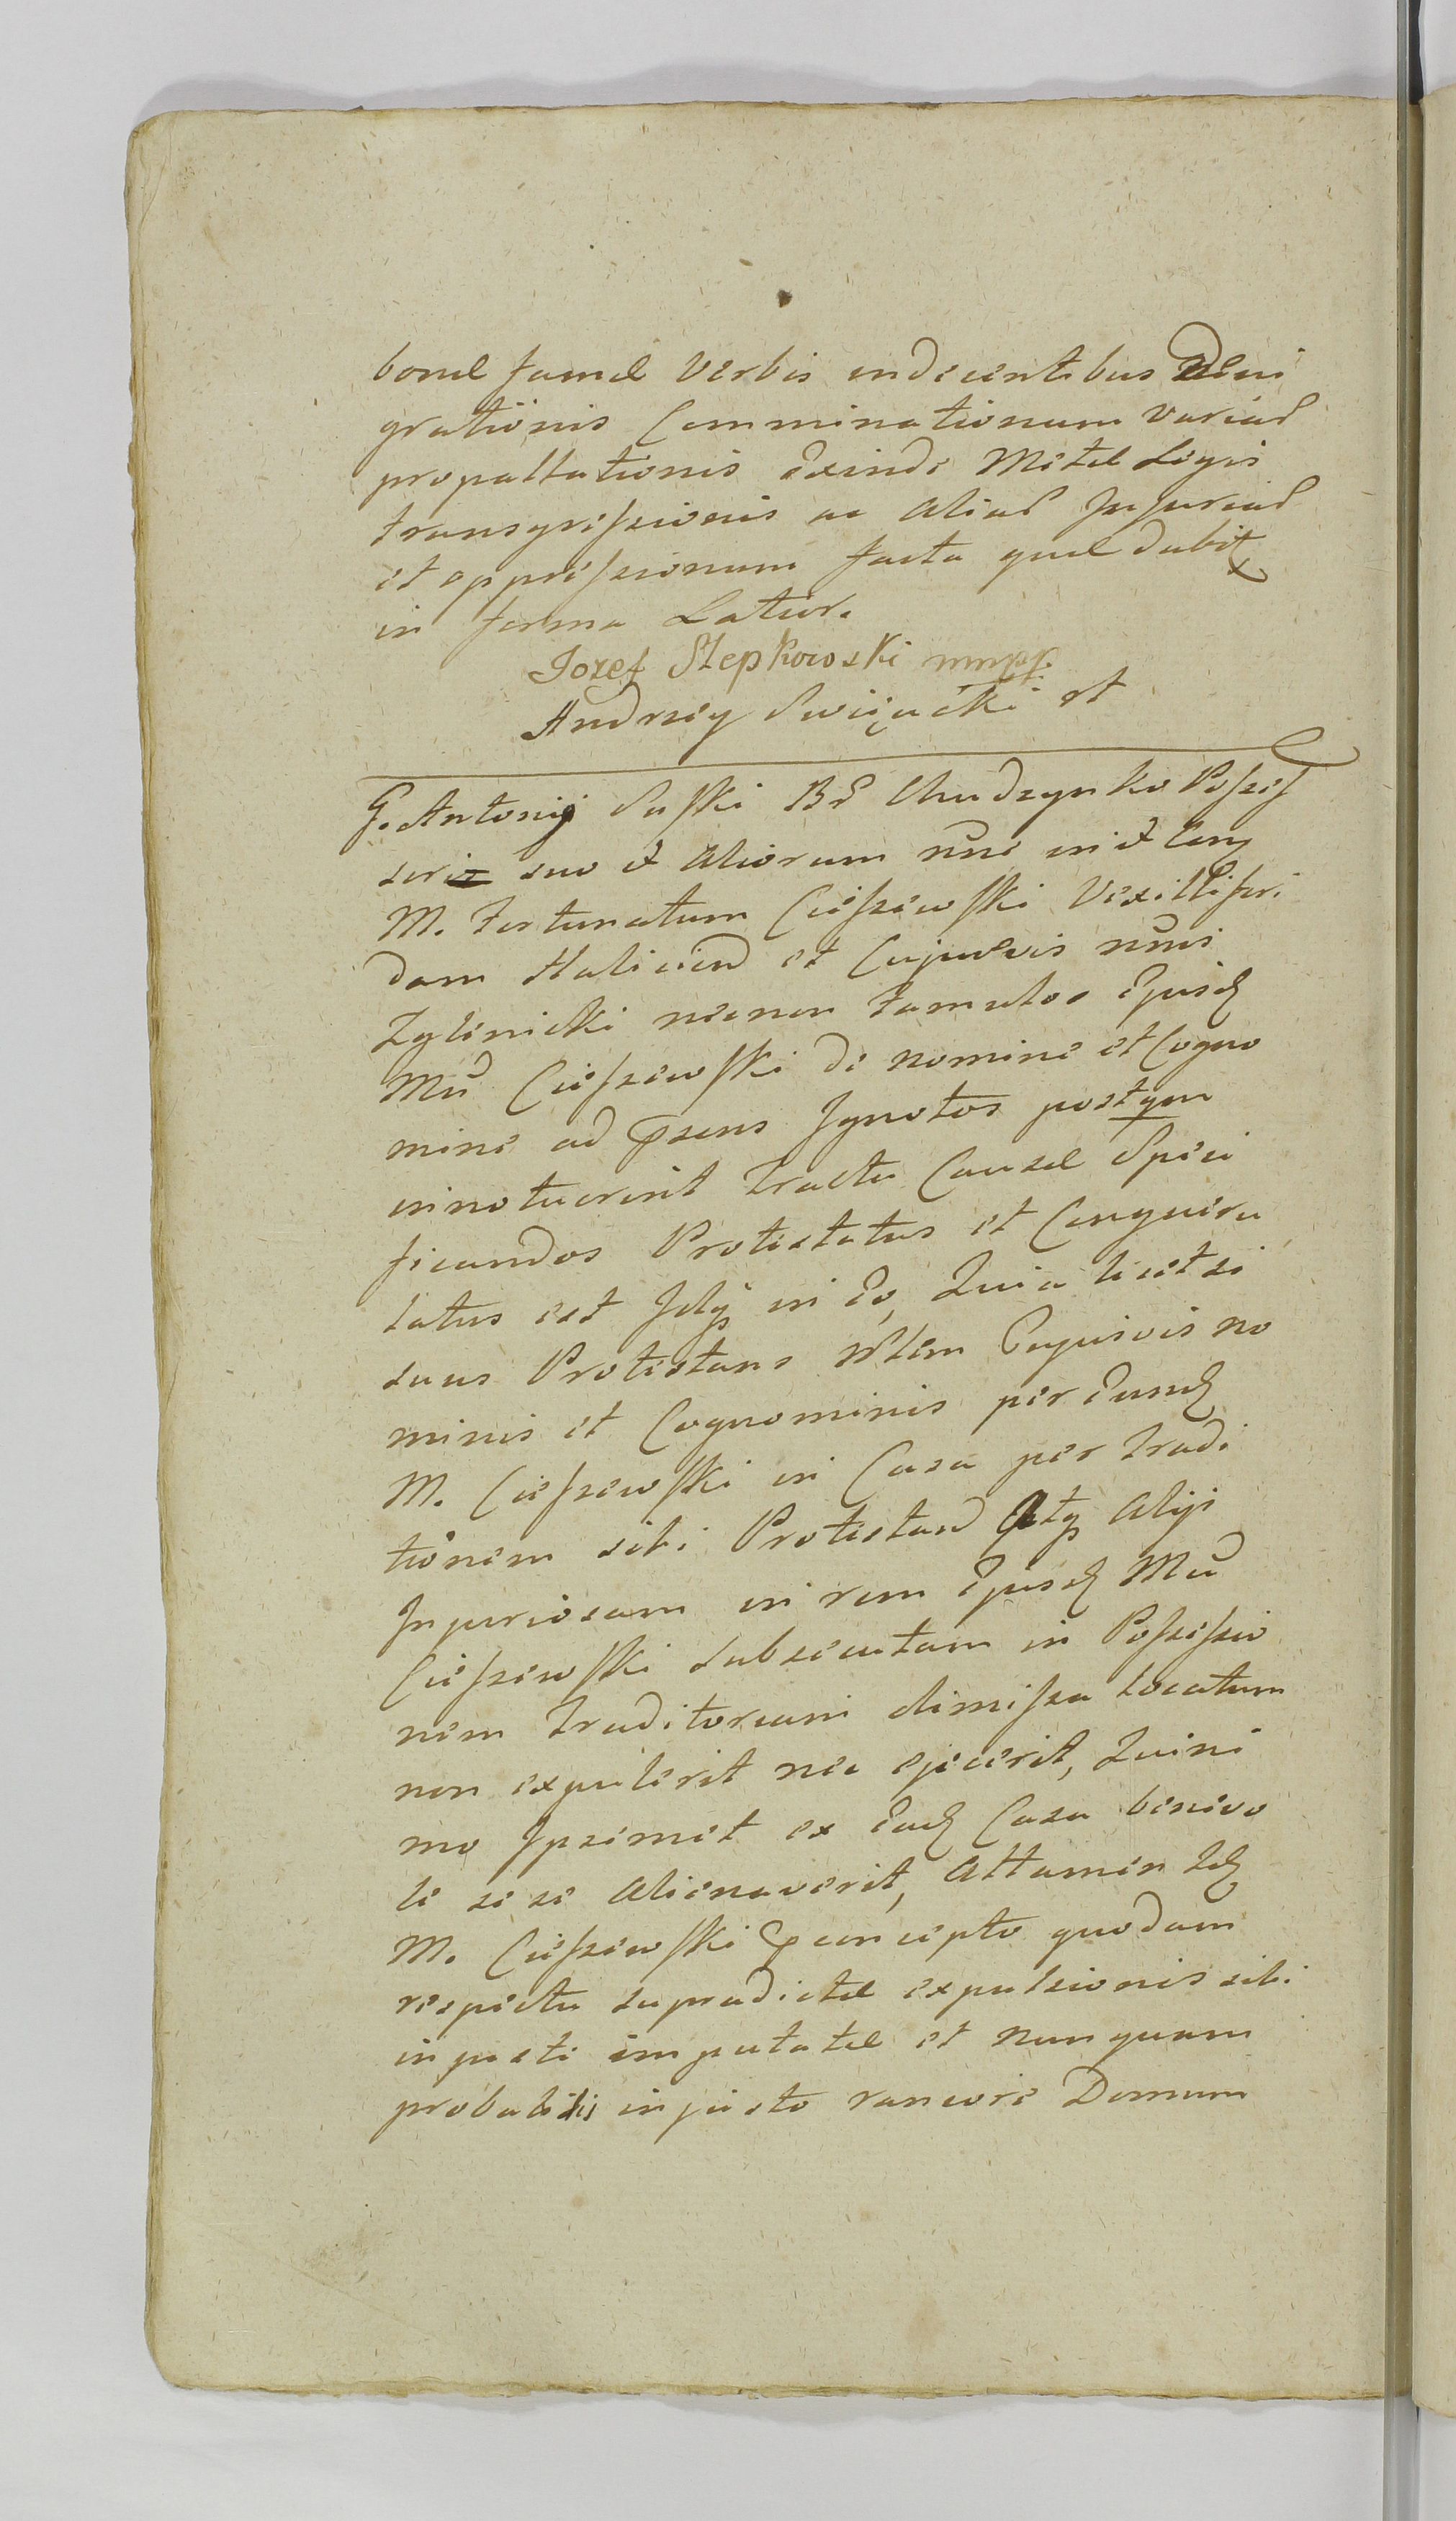 bonæ famæ verbis indecentibus Deni
grationis Comminationum variar
propallationis exinde Metæ Legis
transgressionis ac aliar Injuriar
et oppressionum facta quæ dabit
in forma Latior.
Jozef Stepkowski
Andrzey Swięcicki et
G. Antonij Suski Br Chudzynko Posses
sorio suo et aliorum nne in et Cong
M. Fortunatum Cieszewski Vexillifer.
dam Halicien et Cujusvis nnis
Zglinicki necnon Famulos Ejusd
Mci Cieszewski de nomine et Cogno
mine ad psens Ignotos postqm
innotuerint Tractu Causæ Speci
ficandos Protestatus et Conquæru
latus est Idq in Eo, Quia licet si
suus Protestans Cujusvis no
minis et Cognominis per Eund
M. Cieszewski in Casa per Tradi
tionem sibi Protestand Atq Aliji
Injuriosam in rem Ejusd Mci
Cieszewski subsecutam in Possessio
nem Traditoream dimissa locatum
non expulerit nec ejecerit, Quini
mo Ipsimet ex Ead Casa benevo
le se se alienaverit, Attamen Id
M. Cieszewski pconcepto quodam
respectu supradictæ expulsionis sibi
injuste imputatæ et nunquam
probabilis injusto rancore Domum